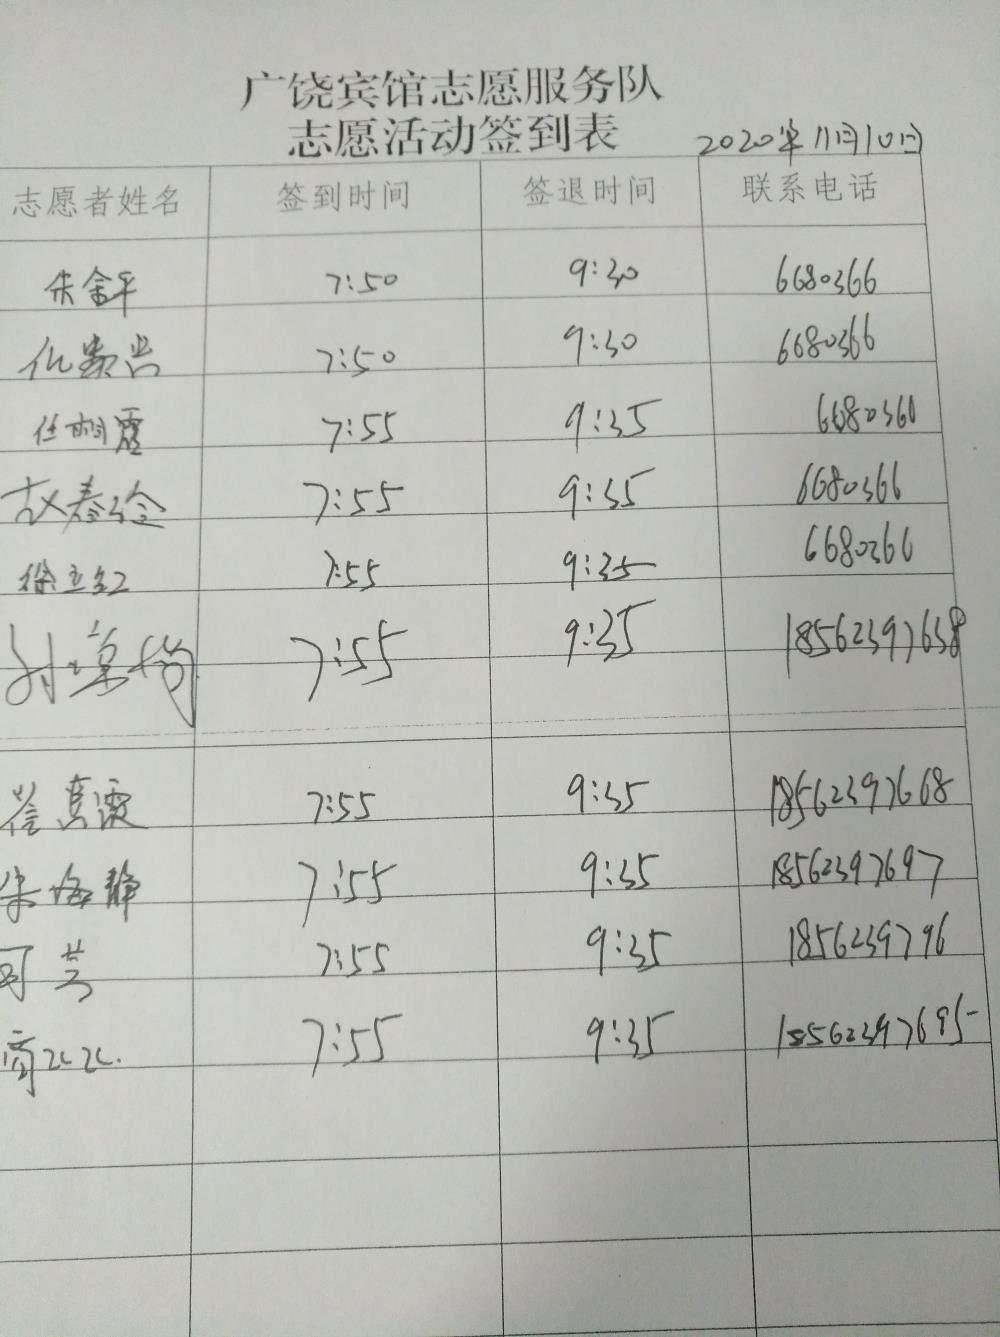 广饶宾馆志愿服务队
志愿活动签到表
2020年11月10日
志愿者姓名 签到时间 签退时间 联系电话
朱金平 7:50 9:30 6680366
7:50 9:30 6680366
任桐霞 7:55 9:35 6680366
7:55 9:35 6680366
徐立红 7:55 9:35 6680366
7:55 9:35 18562397638
7:55 9:35 18562397668
朱海静 7:55 9:35 18562397697
7:55 9:35 1856239796
7:55 9:35 18562397695